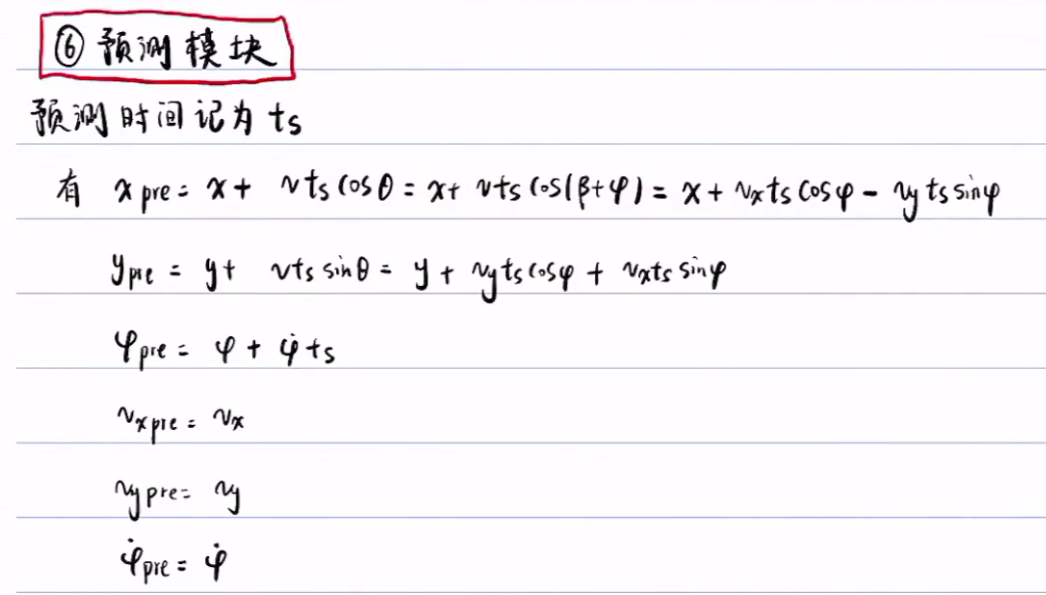 ⑥ 预测模块
预测时间记为 ts
有 xpre = x + vts cosθ = x + vts cos(β+φ) = x + vxts cosφ - vyts sinφ
ypre = y + vts sinθ = y + vyts cosφ + vxts sinφ
φpre = φ + φ̇ts
vxpre = vx
vypre = vy
φ̇pre = φ̇